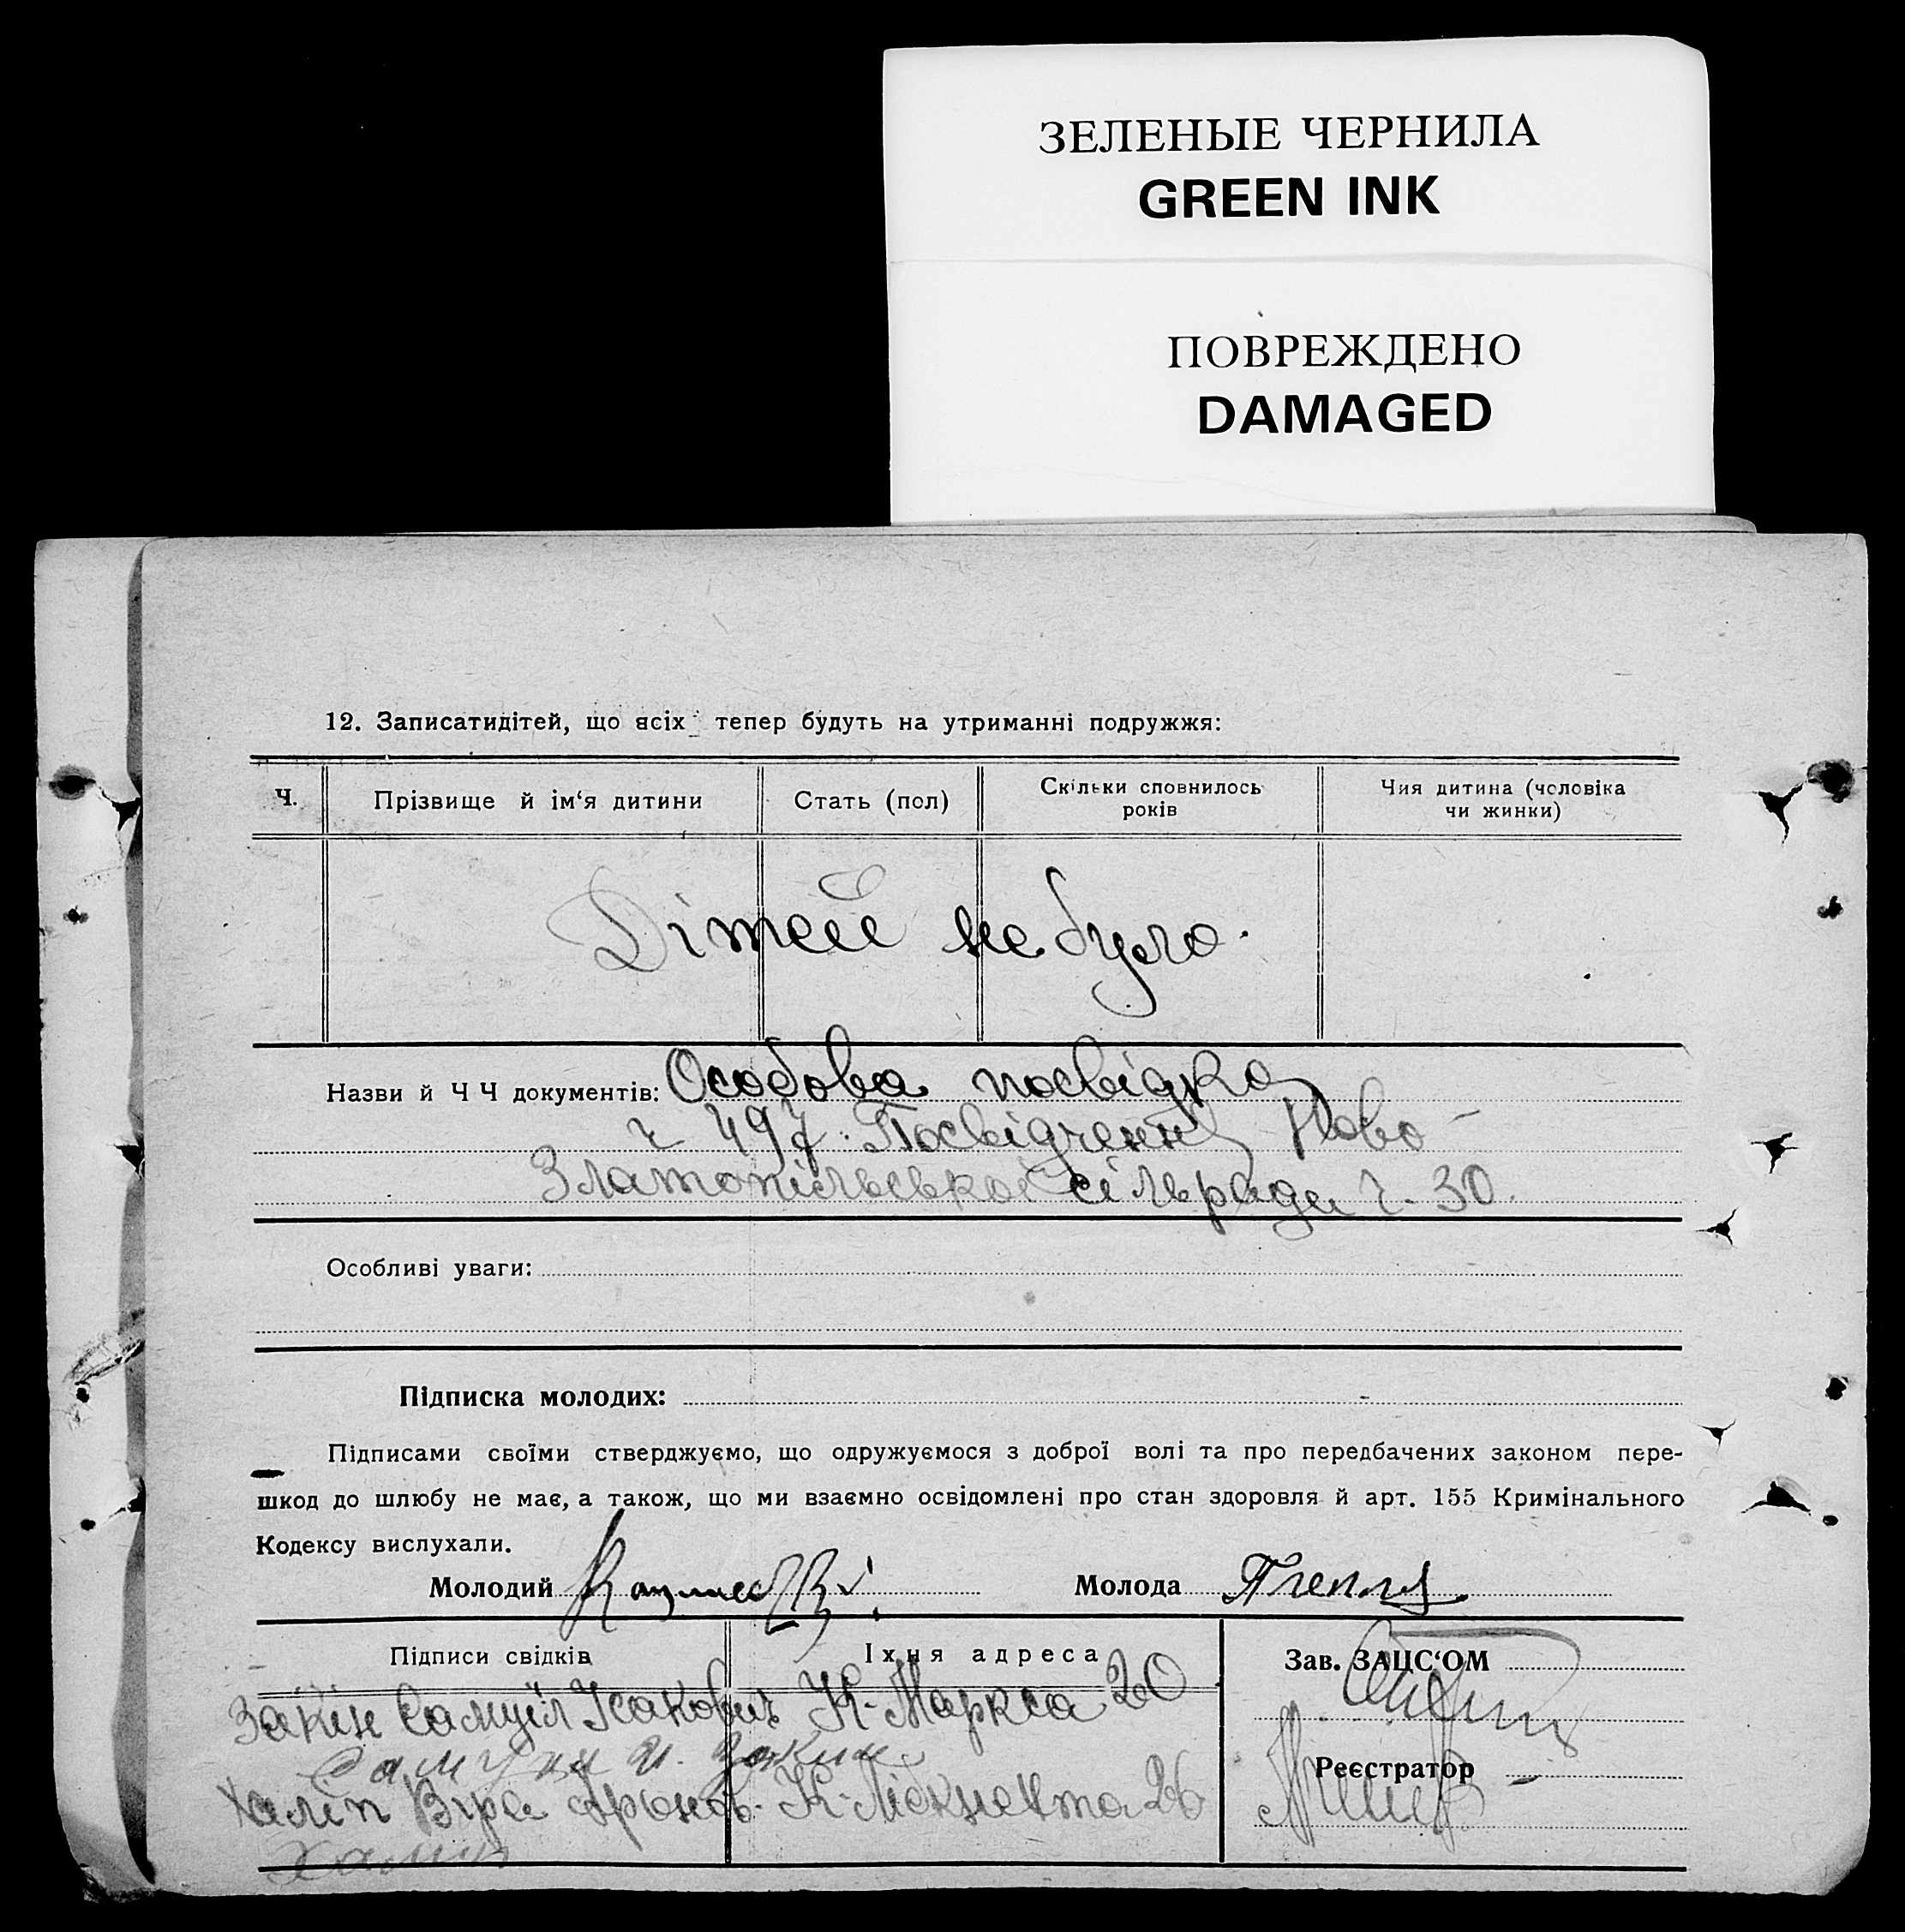 ЗЕЛЕНЫЕ ЧЕРНИЛА
GREEN INK
ПОВРЕЖДЕНО
DAMAGED
12. Записатидітей, що всіх тепер будуть на утриманні подружжя:
Ч.
Прізвище й ім‘я дитини
Стать (пол)
Скільки сповнилось
років
Чия дитина (чоловіка
чи жинки)
Дітей не було.
Назви й Ч Ч документів: Особова посвідка
ч 497. Посвідчення Ново-
Златопільської сільради ч. 30.
Особливі уваги:
Підписка молодих:
Підписами своїми стверджуємо, що одружуємося з доброї волі та про передбачених законом пере-
шкод до шлюбу не має, а також, що ми взаємно освідомлені про стан здоровля й арт. 155 Кримінального
Кодексу вислухали.
Молодий
Молода
Підписи свідків
Їхня адреса
Зав. ЗАЦС‘ОМ
Закін Самуїл Ісакович К-Маркса 20
Самуил И. Закин
Реєстратор
Халіп Віра К-Лібкнехта 26